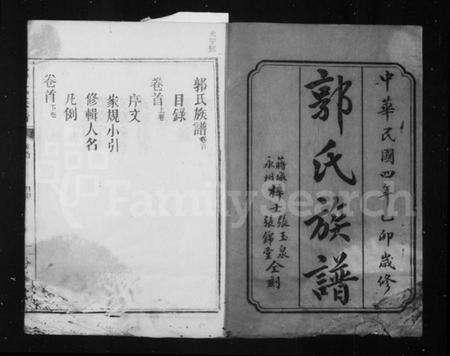 中華民國四年乙卯歲修
郭氏族譜
梓士張玉泉
永州 張錦堂 仝刻
郭氏族譜 卷首
目錄
卷首 上卷
序文
家規小引
修輯人名
凡例
卷首 下卷
FamilySearch